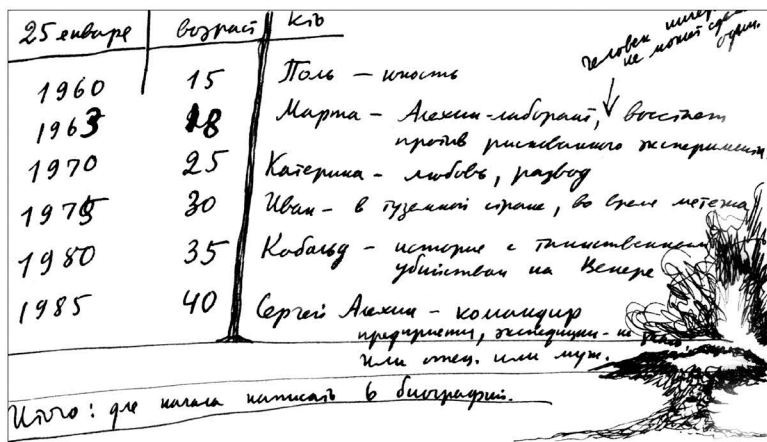 25 января возраст кто
человек
не может сде
один.
1960 15 Поль — юность
1963 18 Марта — Алехин-лаборант, восстает
против рискованного эксперимента
1970 25 Катерина — любовь, развод
1975 30 Иван — в туземной стране, во время мятежа
1980 35 Кобольд — история с таинственным
убийством на Венере
1985 40 Сергей Алехин — командир
предприятия, экспедиции — не
или отец, или муж.
Итого: для начала написать 6 биографий.